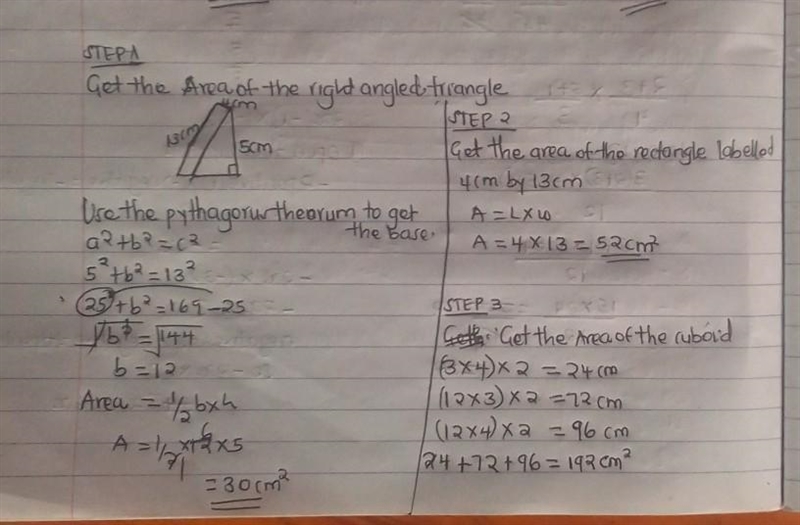 STEP 1
Get the Area of the right angled triangle
4cm
13cm
5cm
Use the pythagorus theorum to get
the base.
a²+b²=c²
5²+b²=13²
25+b²=169-25
√b²=√144
b=12
Area = 1/2 b×h
A = 1/2 × 12 × 5
6
1
= 30cm²
STEP 2
Get the area of the rectangle labelled
4cm by 13cm
A = L×W
A = 4×13 = 52cm²
STEP 3
Get the Area of the cuboid
(3×4)×2 = 24cm
(12×3)×2 = 72cm
(12×4)×2 = 96 cm
24+72+96=192cm²